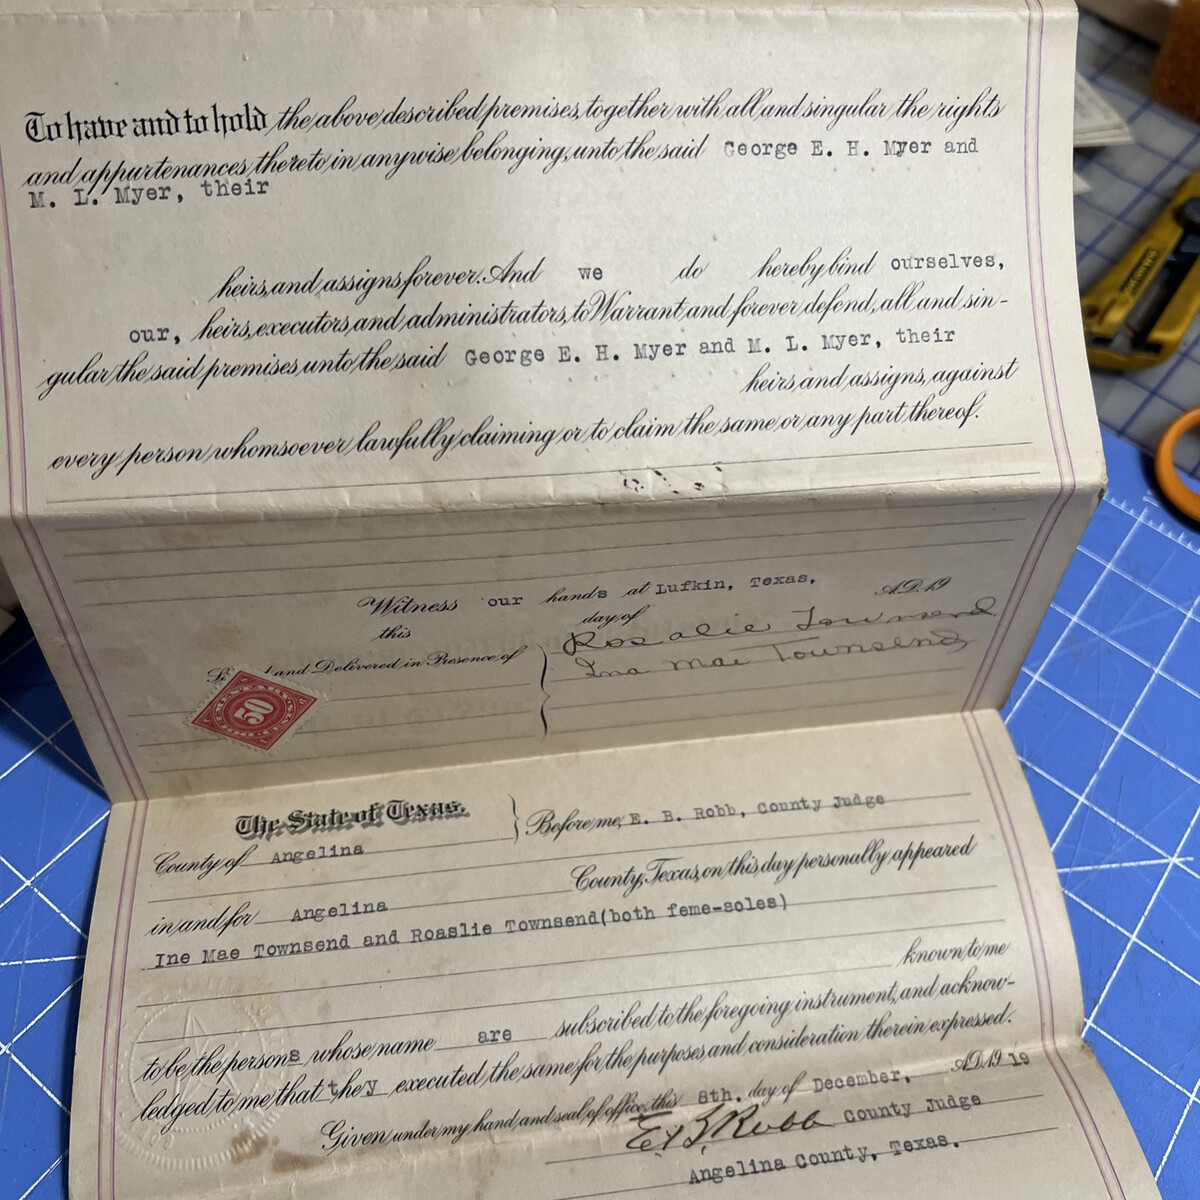 To have and to hold the above described premises, together with all and singular the rights
and appurtenances thereto in anywise belonging, unto the said George E. H. Myer and
M. L. Myer, their
heirs, and assigns, forever. And we do hereby bind ourselves,
our, heirs, executors, and administrators, to Warrant and forever defend, all and sin-
gular the said premises, unto the said George E. H. Myer and M. L. Myer, their
heirs, and assigns, against
every person whomsoever lawfully claiming or to claim the same or any part thereof.
Witness our hands at Lufkin, Texas,
this day of A.D. 19
and Delivered in Presence of
Rosalie Townsend
Ina Mae Townsend
50
The State of Texas.
County of Angelina
Before me, E. B. Robb, County Judge
in and for Angelina County, Texas, on this day personally appeared
Ine Mae Townsend and Roaslie Townsend(both feme-soles)
known to me
to be the persons whose name are subscribed to the foregoing instrument, and acknow-
ledged to me that they executed the same for the purposes and consideration therein expressed.
Given under my hand and seal of office, this 8th. day of December, A.D. 19 19
E. B. Robb County Judge
Angelina County, Texas.